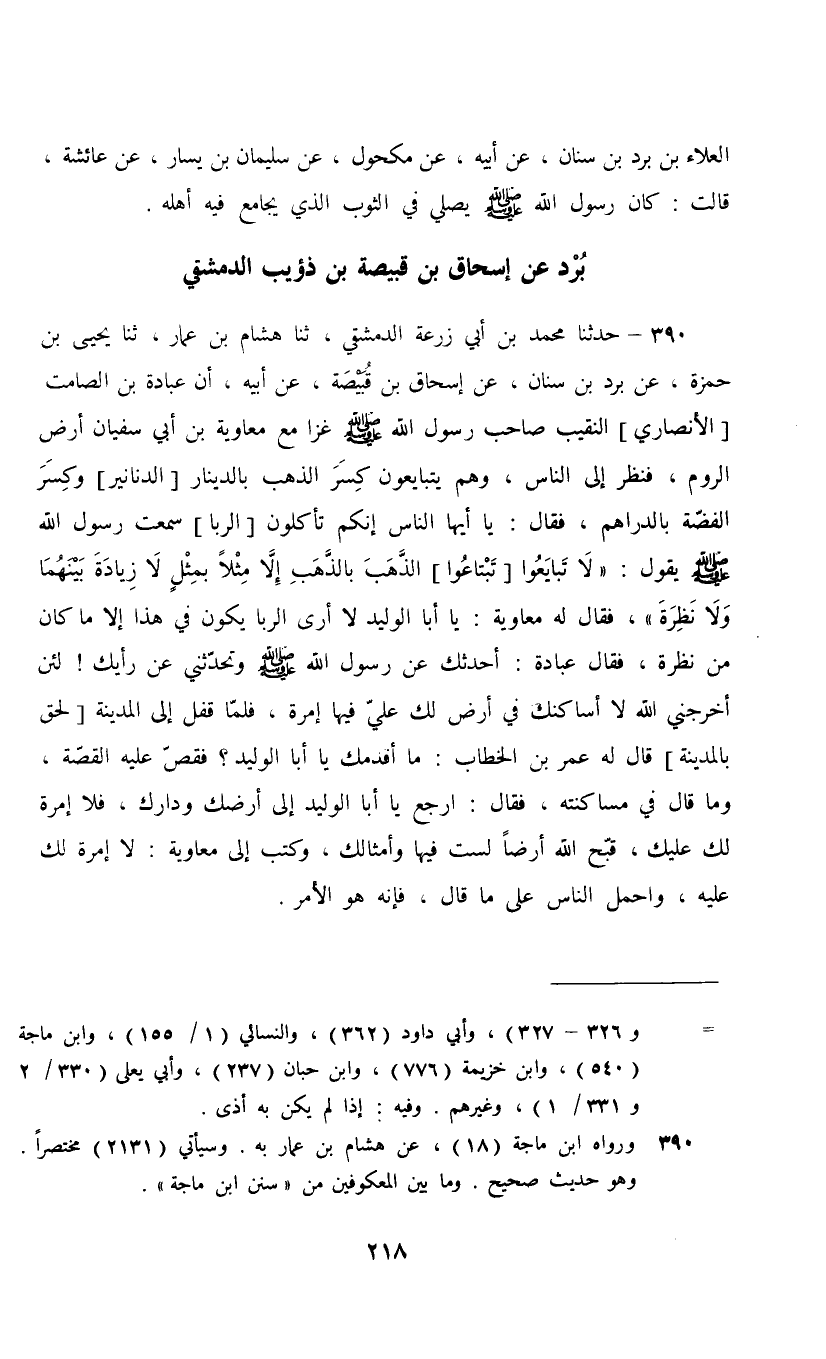 العلاء بن برد بن سنان ، عن أبيه ، عن مكحول ، عن سليمان بن يسار ، عن عائشة ،
قالت : كان رسول الله ﷺ يصلي في الثوب الذي يجامع فيه أهله .
بُرْد عن إسحاق بن قبيصة بن ذؤيب الدمشقي
٣٩٠ – حدثنا محمد بن أبي زرعة الدمشقي ، ثنا هشام بن عمار ، ثنا يحيى بن
حمزة ، عن برد بن سنان ، عن إسحاق بن قُبَيْصَة ، عن أبيه ، أن عبادة بن الصامت
[ الأنصاري ] النقيب صاحب رسول الله ﷺ غزا مع معاوية بن أبي سفيان أرض
الروم ، فنظر إلى الناس ، وهم يتبايعون كِسَرَ الذهب بالدينار [ الدنانير ] وكِسَرَ
الفضّة بالدراهم ، فقال : يا أيها الناس إنكم تأكلون [ الربا ] سمعت رسول الله
ﷺ يقول : « لَا تَبايَعُوا [ تَبْتاعُوا ] الذَّهَبَ بالذَّهَبِ إِلَّا مِثْلاً بمِثْلٍ لَا زِيادَةَ بَيْنَهُمَا
وَلَا نَظِرَةَ » ، فقال له معاوية : يا أبا الوليد لا أرى الربا يكون في هذا إلا ما كان
من نظرة ، فقال عبادة : أحدثك عن رسول الله ﷺ وتحدّثني عن رأيك ! لئن
أخرجني الله لا أساكنك في أرض لك عليّ فيها إمرة ، فلمّا قفل إلى المدينة [ لحق
بالمدينة ] قال له عمر بن الخطاب : ما أقدمك يا أبا الوليد ؟ فقصّ عليه القصّة ،
وما قال في مساكنته ، فقال : ارجع يا أبا الوليد إلى أرضك ودارك ، فلا إمرة
لك عليك ، قبّح الله أرضاً لست فيها وأمثالك ، وكتب إلى معاوية : لا إمرة لك
عليه ، واحمل الناس على ما قال ، فإنه هو الأمر .
= و ٣٢٦ – ٣٢٧ ) ، وأبي داود ( ٣٦٢ ) ، والنسائي ( ١ / ١٥٥ ) ، وابن ماجة
( ٥٤٠ ) ، وابن خزيمة ( ٧٧٦ ) ، وابن حبان ( ٢٣٧ ) ، وأبي يعلى ( ٣٣٠ / ٢
و ٣٣١ / ١ ) ، وغيرهم . وفيه : إذا لم يكن به أذى .
٣٩٠ ورواه ابن ماجة ( ١٨ ) ، عن هشام بن عمار به . وسيأتي ( ٢١٣١ ) مختصراً .
وهو حديث صحيح . وما بين المعكوفين من « سنن ابن ماجة » .
٢١٨